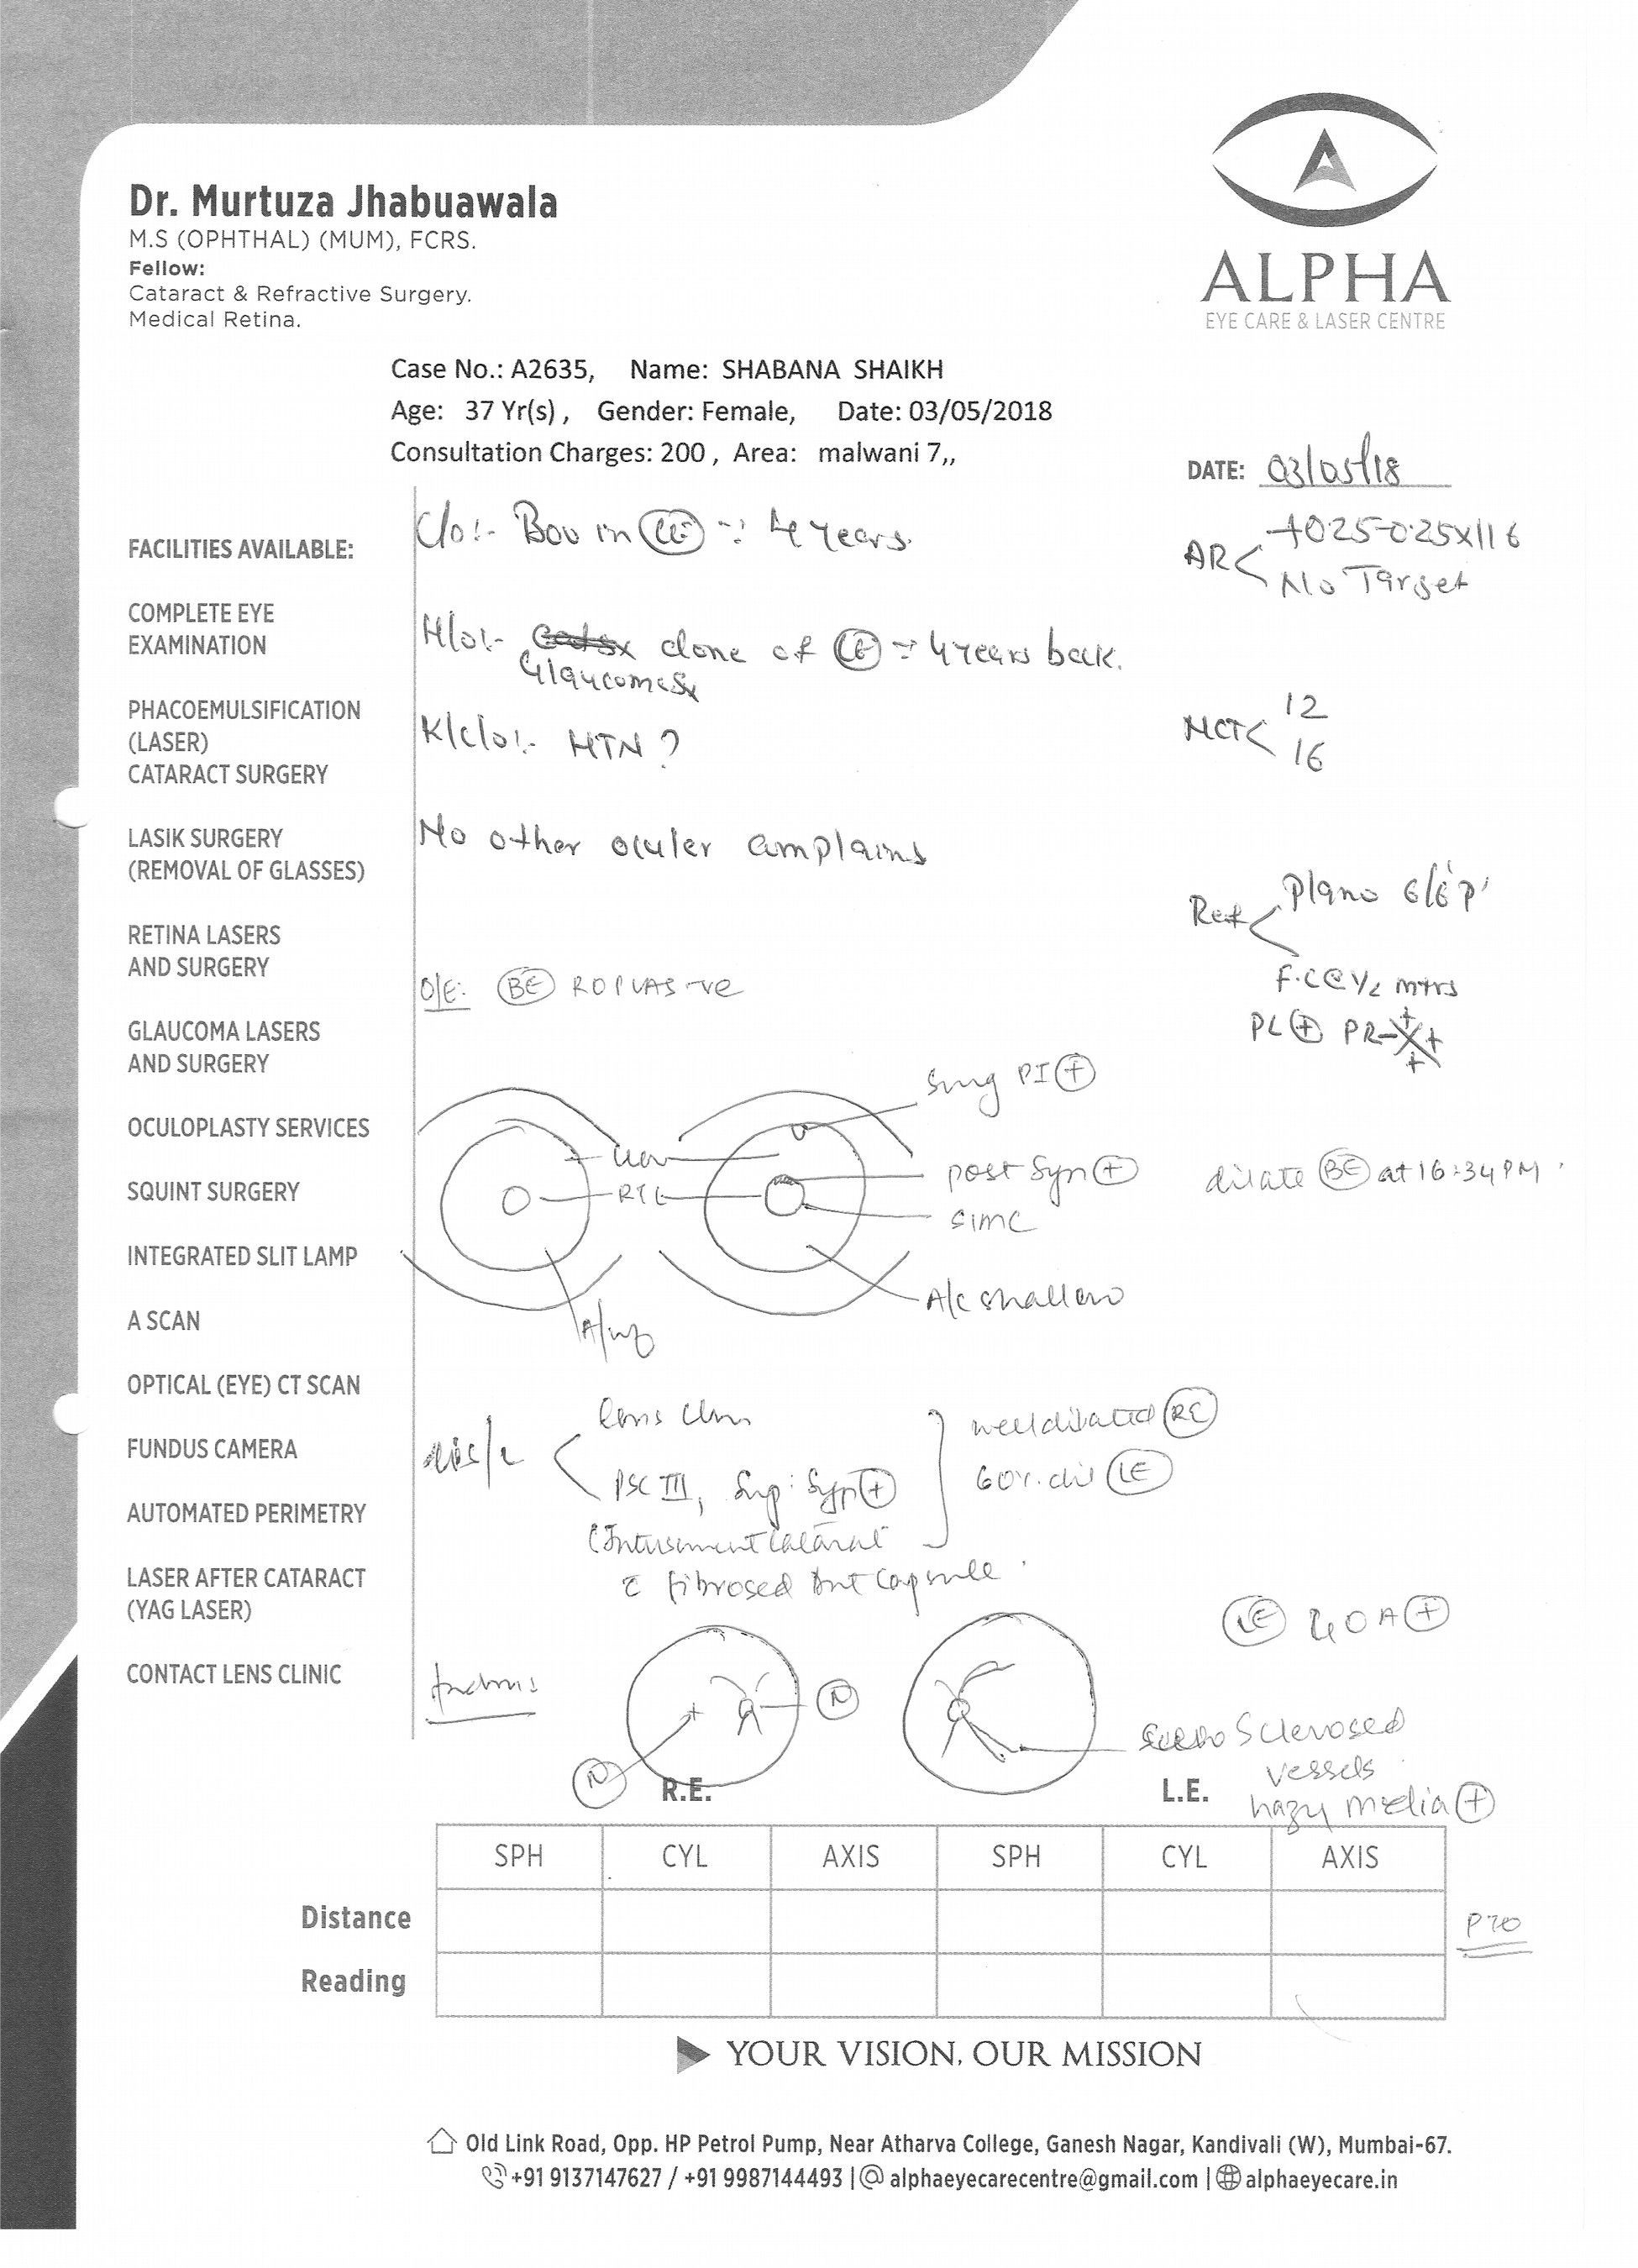 Dr. Murtuza Jhabuawala
M.S (OPHTHAL) (MUM), FCRS.
Fellow:
Cataract & Refractive Surgery.
Medical Retina.
ALPHA
EYE CARE & LASER CENTRE
Case No.: A2635, Name: SHABANA SHAIKH
Age: 37 Yr(s) , Gender: Female, Date: 03/05/2018
Consultation Charges: 200 , Area: malwani 7,,
DATE: 03/05/18
C/o:- Bov in LE 4 years.
AR < +0.25-0.25x116
No Target
H/o:- done of LE 4 years back.
Glaucoma Sx
K/c/o:- HTN ?
NCT < 12
16
No other ocular complains
Ref < Plano 6/6 P
F.C@1/2 mtrs
PL + PR + + +
O/E: BE ROPLAS -ve
PI +
RTL
post syn +
SIMC
dilate BE at 16:34 PM
A/c shallow
lens
PSC III, Sup. Syn +
Cataract
fibrosed Ant Capsule
well dilated RE
60%. dil LE
LE GOA +
fundus
N
N
Sclerosed
vessels
hazy media +
FACILITIES AVAILABLE:
COMPLETE EYE
EXAMINATION
PHACOEMULSIFICATION
(LASER)
CATARACT SURGERY
LASIK SURGERY
(REMOVAL OF GLASSES)
RETINA LASERS
AND SURGERY
GLAUCOMA LASERS
AND SURGERY
OCULOPLASTY SERVICES
SQUINT SURGERY
INTEGRATED SLIT LAMP
A SCAN
OPTICAL (EYE) CT SCAN
FUNDUS CAMERA
AUTOMATED PERIMETRY
LASER AFTER CATARACT
(YAG LASER)
CONTACT LENS CLINIC
R.E. L.E.
SPH CYL AXIS SPH CYL AXIS
Distance
PTO
Reading
YOUR VISION, OUR MISSION
Old Link Road, Opp. HP Petrol Pump, Near Atharva College, Ganesh Nagar, Kandivali (W), Mumbai-67.
+91 9137147627 / +91 9987144493 | @ alphaeyecarecentre@gmail.com | alphaeyecare.in